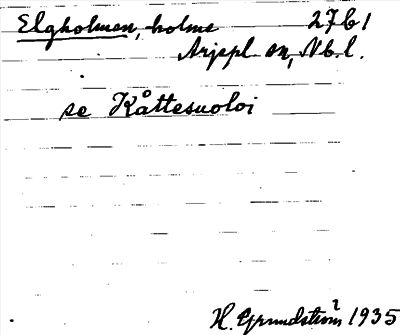 Elgholmen, holme 27b1
Arjepl sn, Nb.l.
se Kåttesuoloi
H. Grundström 1935